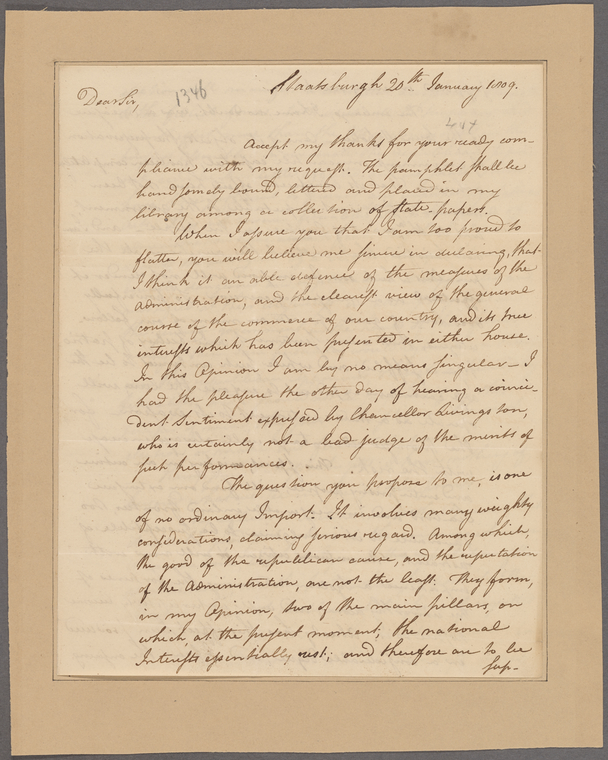 Staatsburgh 20th January 1809.
Dear Sir,
1346
Accept my thanks for your ready com-
pliance with my request. The pamphlet shall be
handsomely bound, lettered and placed in my
library among a collection of state-papers.
When I assure you that I am too proud to
flatter, you will believe me sincere in declaring, that
I think it an able defence of the measures of the
administration, and the clearest view of the general
course of the commerce of our country, and its true
interests which has been presented in either house.
In this Opinion I am by no means singular – I
had the pleasure the other day of hearing a coinci-
dent Sentiment expressed by Chancellor Livingston,
who is certainly not a bad judge of the merits of
such performances.
The question you propose to me, is one
of no ordinary Import. It involves many weighty
considerations, claiming serious regard. Among which,
the good of the republican cause, and the reputation
of the Administration, are not the least. They form,
in my Opinion, two of the main pillars, on
which, at the present moment, the national
Interests essentially rest; and therefore are to be
sup-